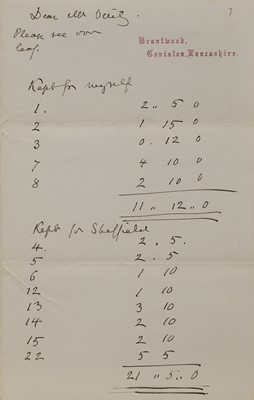 7
Dear Mr
Please see over
leaf.
Brantwood,
Coniston, Lancashire.
Kept for myself
1. 2 ,, 5 0
2 1 15 0
3 0. 12 0
7 4 10 0
8 2 10 0
11 ,, 12 ,, 0
Kept for Sheffield
4. 2. 5.
5 2. 5
6 1 10
12 1 10
13 3 10
14 2 10
15 2 10
22 5 5
21 ,, 5 ,, 0